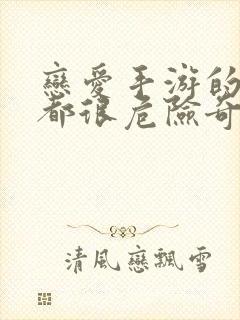 戀愛手游的
都很危險奇
清風戀飄雪